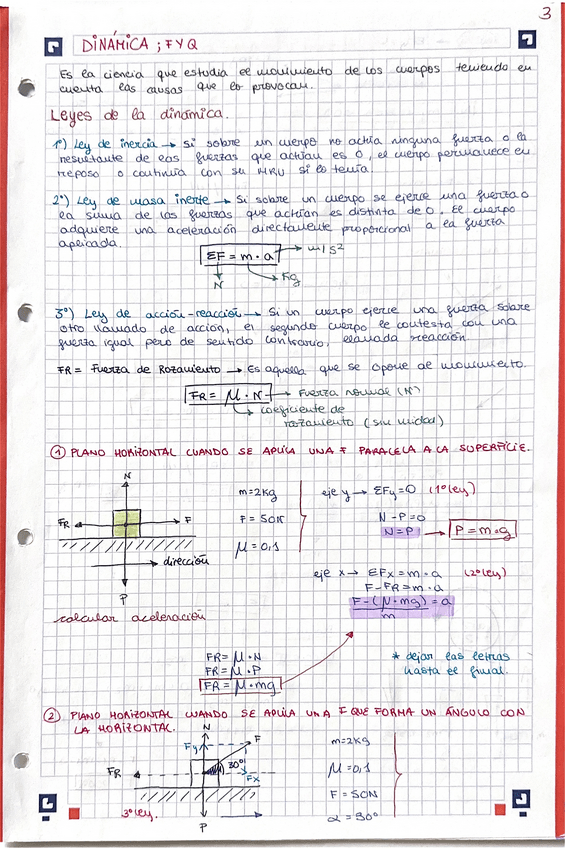 3
DINÁMICA ; FYQ
Es la ciencia que estudia el movimiento de los cuerpos teniendo en
cuenta las causas que lo provocan.
Leyes de la dinámica.
1º) Ley de inercia → Si sobre un cuerpo no actúa ninguna fuerza o la
resultante de eas fuerzas que actúan es 0, el cuerpo permanece en
reposo o continúa con su MRU si lo tenía.
2º) Ley de masa inerte → Si sobre un cuerpo se ejerce una fuerza o
la suma de las fuerzas que actúan es distinta de 0. El cuerpo
adquiere una aceleración directamente proporcional a la fuerza
aplicada.
ΣF = m · a → m/s²
N
Kg
3º) Ley de acción-reacción → Si un cuerpo ejerce una fuerza sobre
otro llamado de acción, el segundo cuerpo le contesta con una
fuerza igual pero de sentido contrario, llamada reacción.
FR = Fuerza de Rozamiento → Es aquella que se opone al movimiento.
FR = μ · N → Fuerza normal (N)
coeficiente de
rozamiento (sin unidad)
① PLANO HORIZONTAL CUANDO SE APLICA UNA F PARALELA A LA SUPERFICIE.
N
FR
F
dirección
P
m=2kg
F = 50N
μ = 0,1
eje y → ΣFy = 0 (1º ley)
N - P = 0
N = P → P = m · g
eje x → ΣFx = m · a (2º ley)
F - FR = m · a
F - (μ · mg) = a
m
calcular aceleración
FR = μ · N
FR = μ · P
FR = μ · mg
* dejar las letras
hasta el final.
② PLANO HORIZONTAL CUANDO SE APLICA UNA F QUE FORMA UN ÁNGULO CON
LA HORIZONTAL.
N
Fy
F
30º
FR
Fx
3º ley.
P
m=2kg
μ = 0,1
F = 50N
α = 30º